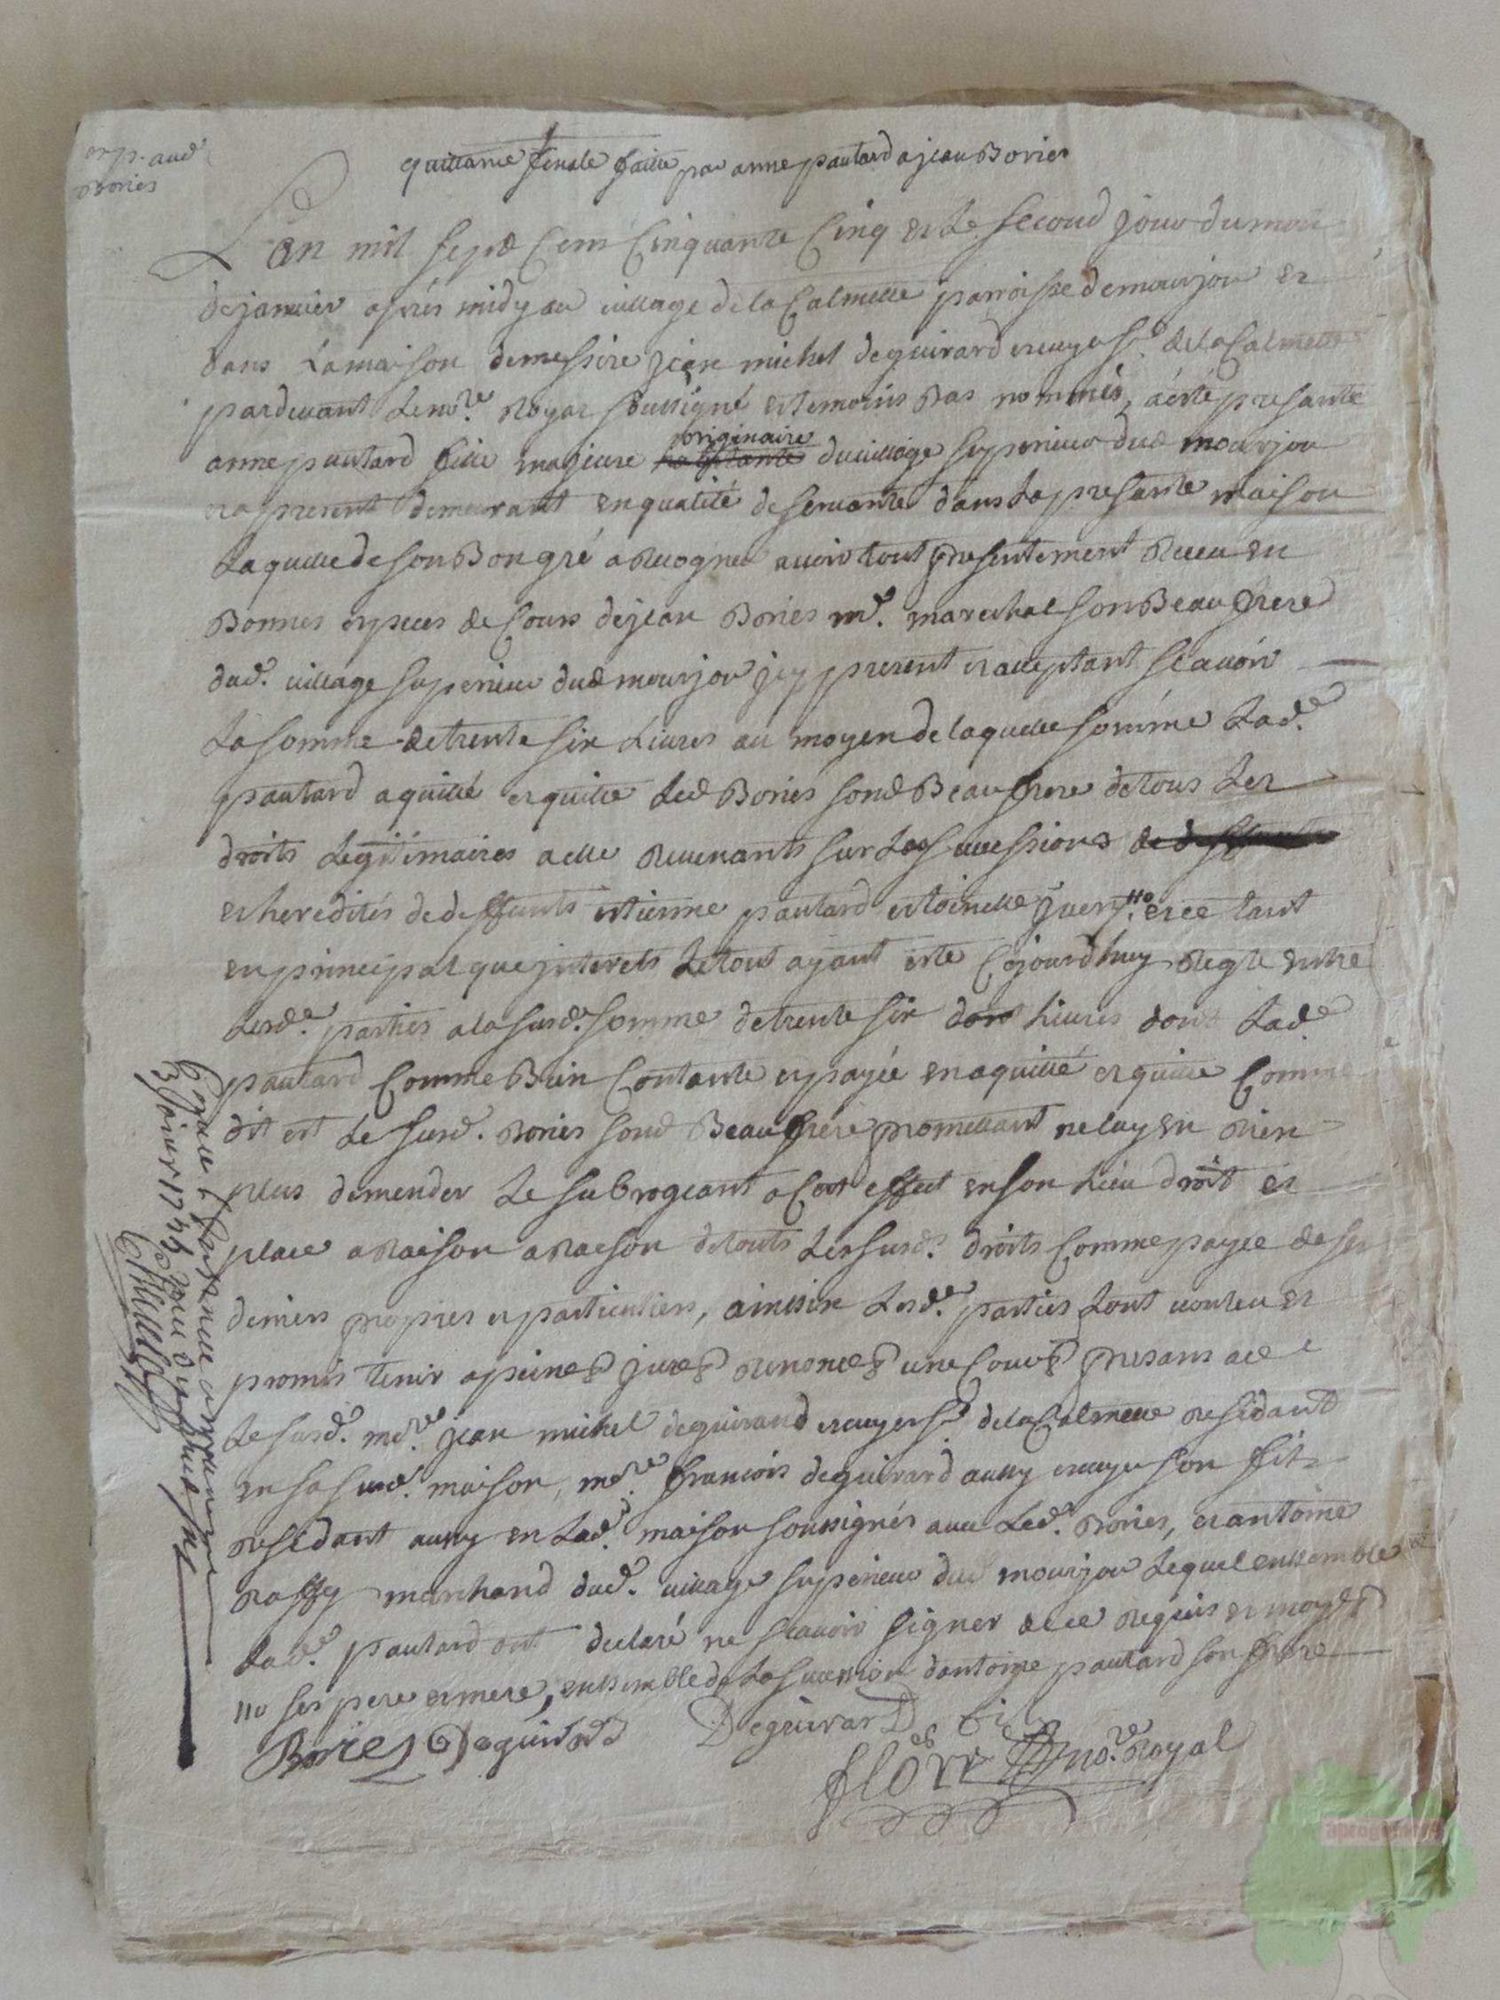 exp. aud.
Bories
quittance finale faitte par anne pautard a jean Bories
L'an mil sept Cens Cinquante Cinq et le second jour du mois
de janvier après midy au village de la Calmette parroisse de mourjou et
dans La maison de messire jean michel deguirard ecuyer sr. de la Calmette
pardevant Le nore. Royal soussigné et temoins Bas nommés, a été presante
anne pautard fille majeure habitante originaire du village superieur dud mourjou
et a present demeurant en qualité de servante dans La presante maison
Laquelle de son Bon gré a Recognu avoir tout presentement Receu en
Bonnes especes de Cours de jean Bories me. marechal son Beau frere
dud. village superieur dud mourjou icy present et acceptant scavoir
La somme de trente six Livres au moyen de laquelle somme Lade.
pautard a quitté et quitte Led Bories sond Beau frere de tous Les
droits Legitimaires a elle Revenants sur Les successions
et heredités de deffunts estienne pautard et toinette 110 et ce tant
en principal que jnterets Le tout ayant este Cejourdhuy Regle entre
Lesde. parties a la susde. somme de trente six dont Livres dont Lade.
pautard Comme Bien Contante et payée en a quitté et quitte Comme
dit est Le susd. Bories sond Beau frere promettant ne luy en Rien
plus demender Le subrogeant a Cest effect en son Lieu droit et
place a Raison a Raison de touts Les susds. droits Comme payée de ses
deniers propres et particuliers, ainsin Lesde. parties L'ont voulu et
promis tenir a peine &c jure &c Renonce &c une Cour &c presans a ce
Le susd. mere. jean michel deguirard ecuyer sr. de la Calmette Residant
en sa susd. maison, mere. francois deguirard aussy ecuyer son fils
Residant aussy en Lad. maison soussignés avec Led. Bories, et antoine
Raffy marchand dud. village superieur dud mourjou Lequel ensemble
Lade. pautard ont declaré ne scavoir signer de ce Requis et moy &c
110 ses pere et mere, ensemble de La succession dantoine pautard son frere
Bories Deguirard Deguirard fils
flory nore. Royal
Le 3 janvier 1755